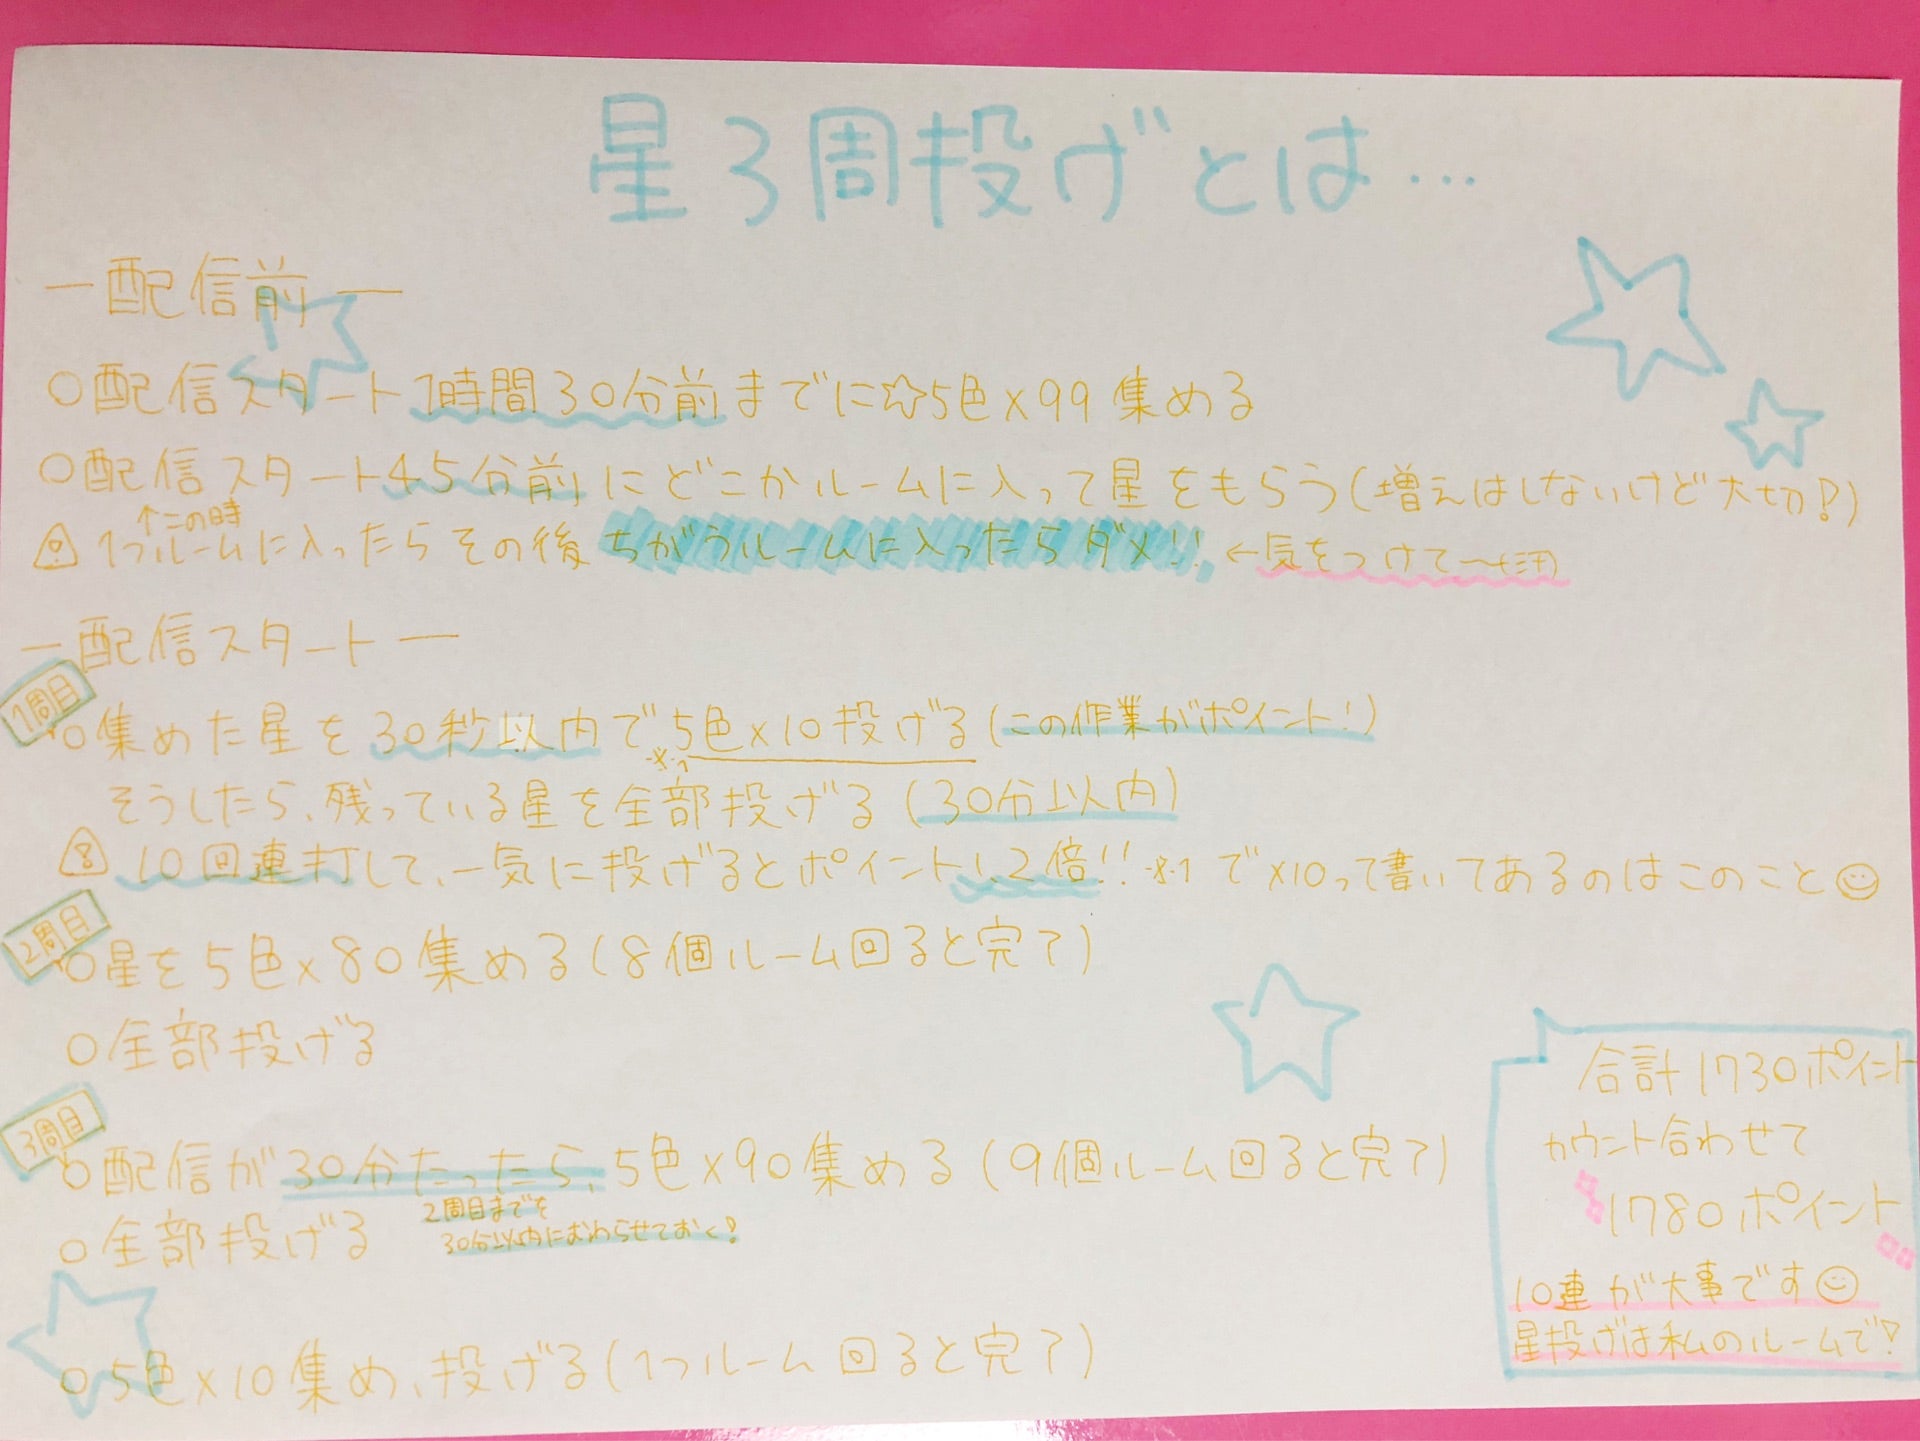 星3周投げとは…
ー配信前ー
○配信スタート1時間30分前までに☆5色×99集める
○配信スタート45分前にどこかルームに入って星をもらう(増えはしないけど大切!)
↑この時
⚠1つルームに入ったらその後ちがうルームに入ったらダメ!!←気をつけて〜(汗)
ー配信スタートー
1周目
○集めた星を30秒以内で5色×10投げる(この作業がポイント!)
※1
そうしたら、残っている星を全部投げる(30分以内)
⚠10回連打して、一気に投げるとポイント1.2倍!!※1で×10って書いてあるのはこのこと☺
2周目
○星を5色×80集める(8個ルーム回ると完了)
○全部投げる
3周目
○配信が30分たったら、5色×90集める(9個ルーム回ると完了)
2周目までを
30分以内におわらせておく!
○全部投げる
○5色×10集め、投げる(1つルーム回ると完了)
合計1730ポイント
カウント合わせて
1780ポイント
10連が大事です☺
星投げは私のルームで!